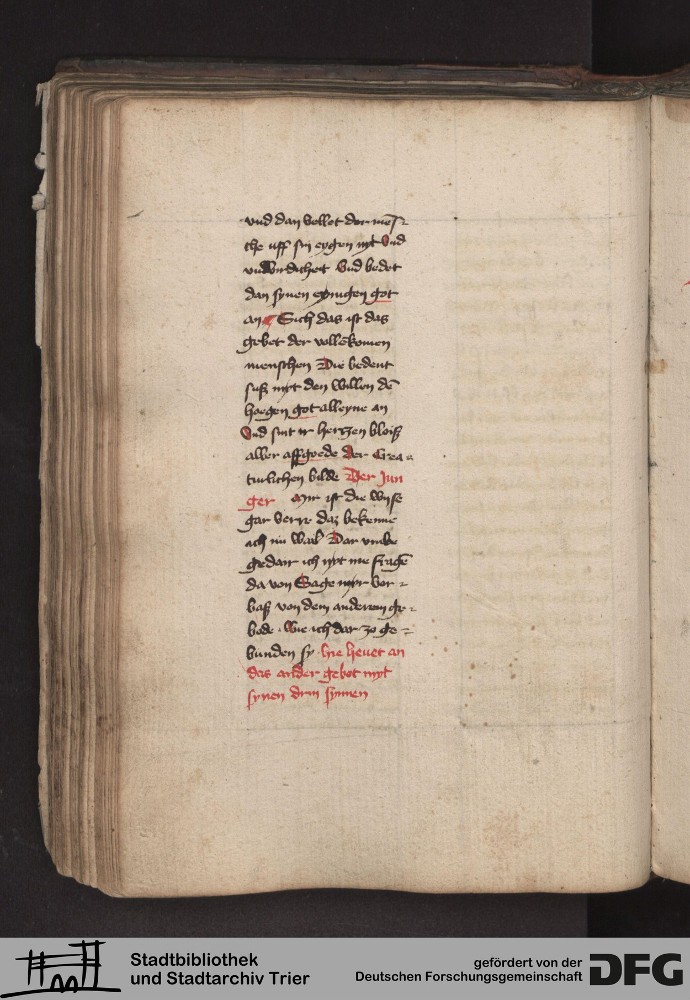 und dan vellet der mēs-
che uff sin eygen nyt Und
unwirdicheit Und bedet
dan synen eynigen got
an Sich das ist das
gebet der vollēkomen
menschen Die bedent
suß myt den willen dē
hoegen got alleyne an
Und sint ir hertzen bloiß
aller affgoede der Crea-
turlichen bilde Der Jun
ger Mir ist die wyse
gar verr daz bekenne
ich nu wail Dar umbe
gedarr ich nyt me fragē
da von Sage myr vor-
baß von dem anderem ge-
bode . Wie ich dar zo ge-
bunden sy . hie hevet an
das ander gebot myt
synen drin synnen
Stadtbibliothek
und Stadtarchiv Trier
gefördert von der
Deutschen Forschungsgemeinschaft
DFG